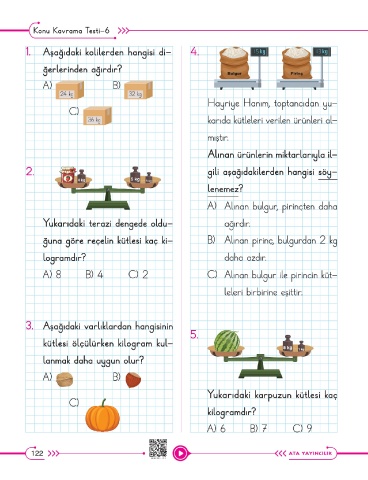 Konu Kavrama Testi-6
1. Aşağıdaki kolilerden hangisi di-
ğerlerinden ağırdır?
A)
24 kg
B)
32 kg
C)
36 kg
2.
Yukarıdaki terazi dengede oldu-
ğuna göre reçelin kütlesi kaç ki-
logramdır?
A) 8 B) 4 C) 2
3. Aşağıdaki varlıklardan hangisinin
kütlesi ölçülürken kilogram kul-
lanmak daha uygun olur?
A)
B)
C)
4.
Bulgur
Pirinç
Hayriye Hanım, toptancıdan yu-
karıda kütleleri verilen ürünleri al-
mıştır.
Alınan ürünlerin miktarlarıyla il-
gili aşağıdakilerden hangisi söy-
lenemez?
A) Alınan bulgur, pirinçten daha
ağırdır.
B) Alınan pirinç, bulgurdan 2 kg
daha azdır.
C) Alınan bulgur ile pirincin küt-
leleri birbirine eşittir.
5.
Yukarıdaki karpuzun kütlesi kaç
kilogramdır?
A) 6 B) 7 C) 9
122
ATA YAYINCILIK